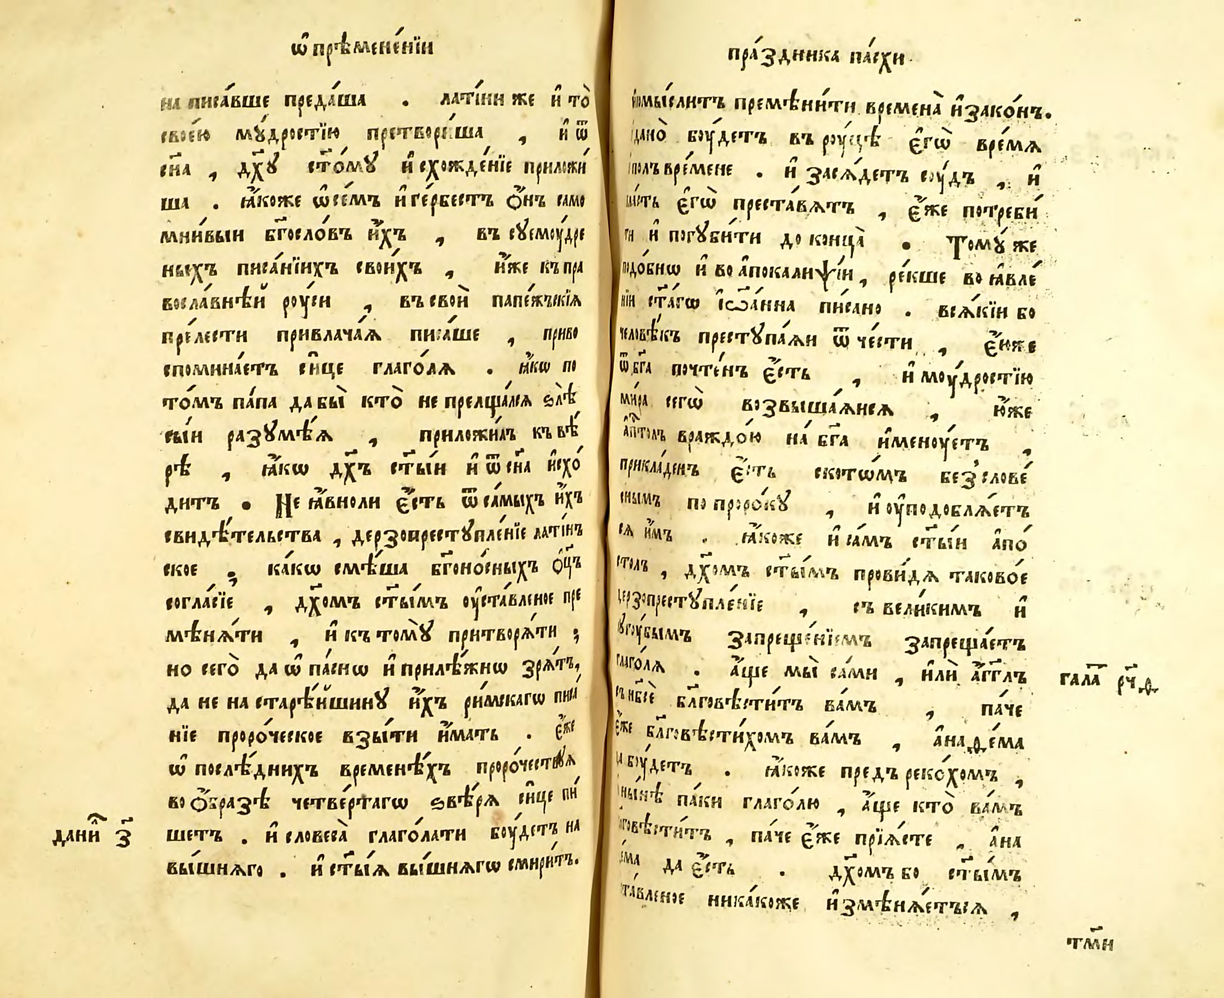 ѡ҆ премене́нїи
на писа́вше преда́ша . лати́ни же и҆ то̀
свое́ю мꙋ́дростїю претвори́ша , и҆ ѿ
сн҃а , дх҃ꙋ ст҃о́мꙋ и҆схожде́нїе приложи́
ша . ꙗ҆́коже ѡ҆ се́мъ и҆ ге́рбестъ ѻ҆́нъ само
мни́выи бг҃осло́въ и҆́хъ , въ сꙋемоу́дре
ныхъ писа́нїихъ свои́хъ , и҆́же къ пра
восла́внѣй роу́си , въ свой папе́жъскїѧ
пре́лести привлача́ѧ писа́ше , приво
спомина́етъ си́це глаго́лѧ . ꙗ҆́кѡ по
то́мъ па́па да бы̀ кто̀ не прелща́лсѧ ѕлѣ̀
сы́и разꙋмѣ́ѧ , приложи́лъ къ вѣ́
рѣ , ꙗ҆́кѡ дх҃ъ ст҃ы́и и҆ ѿ сн҃а и҆схо́
дитъ . Не ꙗ҆́вно ли є҆́сть ѿ са́мыхъ и҆́хъ
свидѣ́тельства , дерзопрестꙋпле́нїе лати́нъ
ское . ка́кѡ смѣ́ша бг҃оно́сныхъ ѻ҆ц҃ъ
согла́сїе , дх҃омъ ст҃ы́мъ оу҆ста́вленое пре
мѣнѧ́ти , и҆ къ томꙋ̀ притворѧ́ти ;
но сего̀ да ѡ҆па́снѡ и҆ прилѣ́жнѡ зрѧ́тъ,
да не на старѣ́йшинꙋ и҆́хъ ри́мскагѡ писа́
нїе проро́ческое взы́ти и҆́мать . є҆́же
ѡ҆ послѣ́днихъ временѣ́хъ проро́чествꙋѧ
во ѻ҆́бразѣ четве́ртагѡ ѕвѣ́рѧ си́це пи́
шетъ . и҆ словеса̀ глаго́лати боу́детъ на
вы́шнѧго . и҆ ст҃ы́ѧ вы́шнѧгѡ смири́тъ.
дани҃ и҆ з҃
пра́здника па́схи
и҆ помы́слитъ премѣни́ти времена̀ и҆ зако́нъ.
дано̀ боу́детъ в роуцѣ̀ є҆гѡ̀ вре́мѧ
полъ вре́мене . и҆ засѧ́детъ соу́дъ , и҆
вла́сть є҆гѡ̀ преста́вѧтъ , є҆́же потреби́
ти и҆ погꙋби́ти до конца̀ . Томꙋ́ же
подо́бнѡ и҆ во а҆покали́ѱїи , ре́кше во ꙗ҆вле́
нїи ст҃а́гѡ і҆ѡа́нна пи́сано . всѧ́кїи бо
человѣ́къ престꙋпа́ѧи ѿ че́сти , є҆́юже
ѿ бг҃а почте́нъ є҆́сть , и҆ моу́дростїю
ми́ра сегѡ̀ возвыша́ѧисѧ , ю҆́же
а҆пⷭ҇толъ враждо́ю на́ бг҃а и҆меноу́етъ ,
прикла́денъ є҆́сть ското́мъ безслове́
снымъ по проро́кꙋ , и҆ оу҆подоблѧ́етъ
сѧ и҆̀мъ . ꙗ҆́коже и҆ са́мъ ст҃ы́и а҆по́
столъ , дх҃омъ ст҃ы́мъ прови́дѧ таково́е
дерзопрестꙋпле́нїе , съ вели́кимъ и҆
сꙋгоу́бымъ запреще́нїемъ запреща́етъ
глаго́лѧ . а҆́ще мы̀ са́ми , и҆лѝ а҆́гг҃лъ
съ нб҃сѐ бл҃говѣсти́тъ ва́мъ , па́че
є҆́же бл҃говѣсти́хомъ ва́мъ , а҆на́ѳема
да боу́детъ . ꙗ҆́коже предъ реко́хомъ ,
и҆ ны́нѣ па́ки глаго́лю , а҆́ще кто̀ ва́мъ
бл҃говѣсти́тъ , па́че є҆́же прїѧ́сте , а҆на́
ѳема да є҆́сть . дх҃омъ бо ст҃ы́мъ
оу҆ста́вленое ника́коже и҆змѣнѧ́етъсѧ ,
гала҃ рч҃ѳ
тм҃и